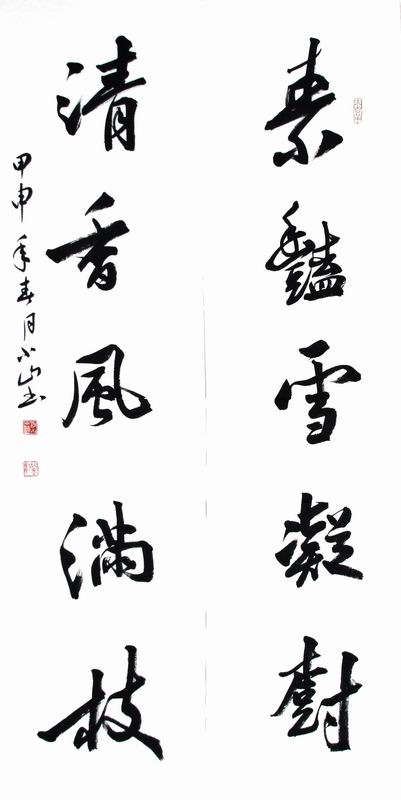 素豔雪凝樹
清香風滿枝
甲申年春月小山书